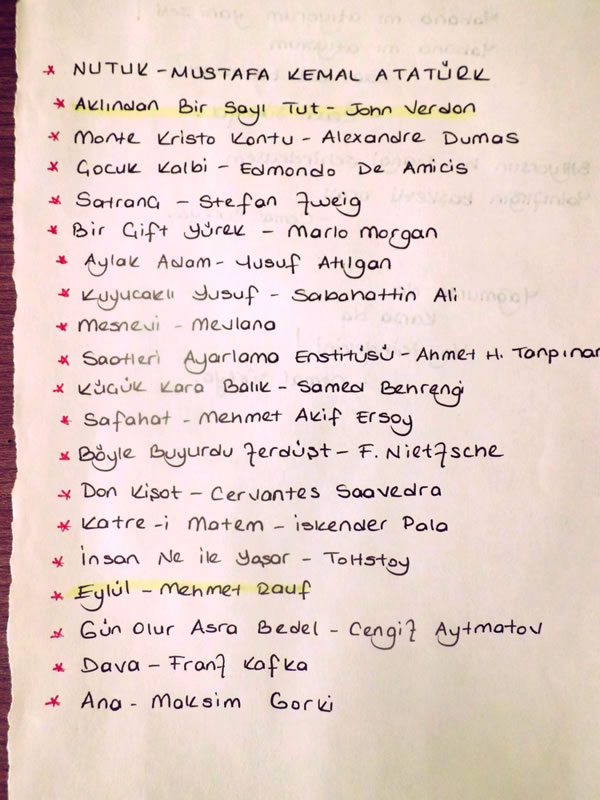 * NUTUK - MUSTAFA KEMAL ATATÜRK
* Aklından Bir Sayı Tut - John Verdon
* Monte Kristo Kontu - Alexandre Dumas
* Çocuk Kalbi - Edmondo De Amicis
* Satranç - Stefan Zweig
* Bir Çift Yürek - Marlo Morgan
* Aylak Adam - Yusuf Atılgan
* Kuyucaklı Yusuf - Sabahattin Ali
* Mesnevi - Mevlana
* Saatleri Ayarlama Enstitüsü - Ahmet H. Tanpınar
* Küçük Kara Balık - Samed Behrengi
* Safahat - Mehmet Akif Ersoy
* Böyle Buyurdu Zerdüşt - F. Nietzsche
* Don Kişot - Cervantes Saavedra
* Katre-i Matem - İskender Pala
* İnsan Ne ile Yaşar - Tolstoy
* Eylül - Mehmet Rauf
* Gün Olur Asra Bedel - Cengiz Aytmatov
* Dava - Franz Kafka
* Ana - Maksim Gorki